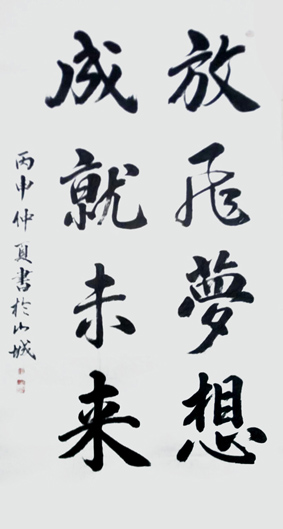 放飛夢想
成就未来
丙申仲夏書於山城